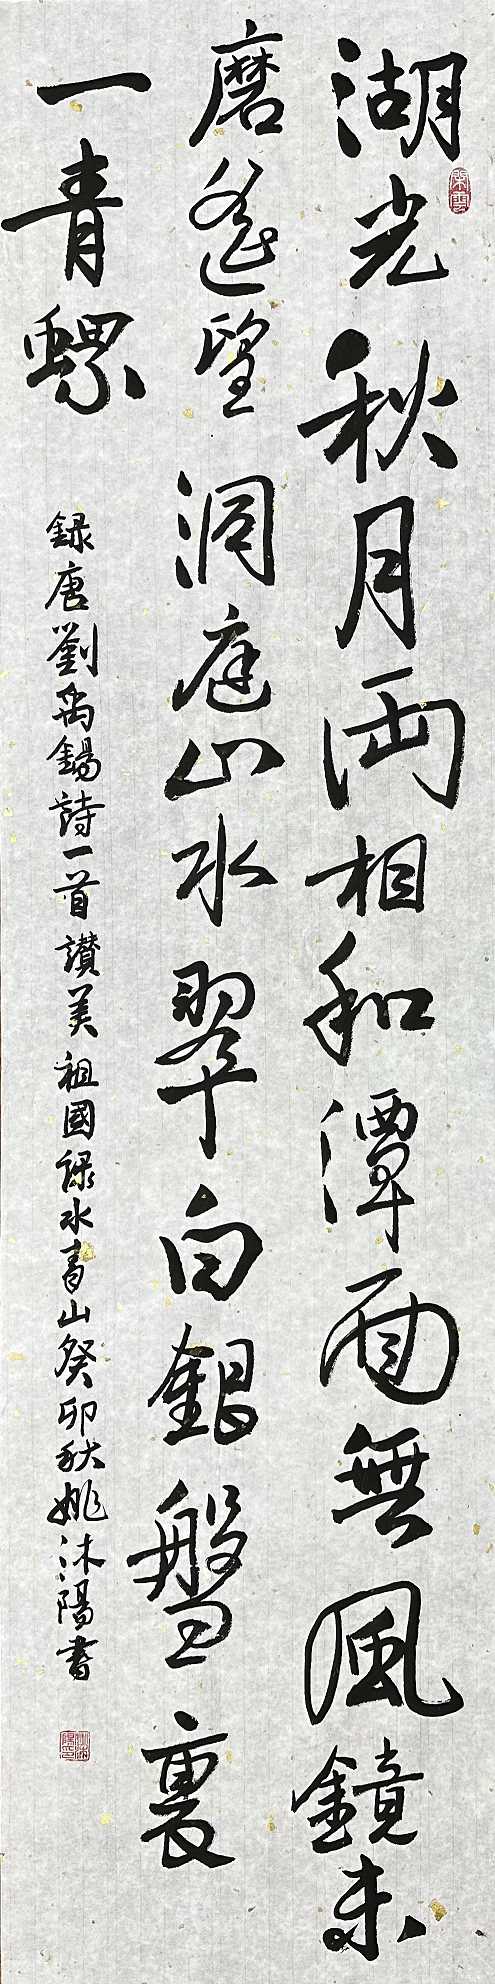 湖光秋月兩相和潭面無風鏡未
磨遙望洞庭山水翠白銀盤裏
一青螺
録唐劉禹錫詩一首讃美祖國绿水青山癸卯秋姚沐陽書